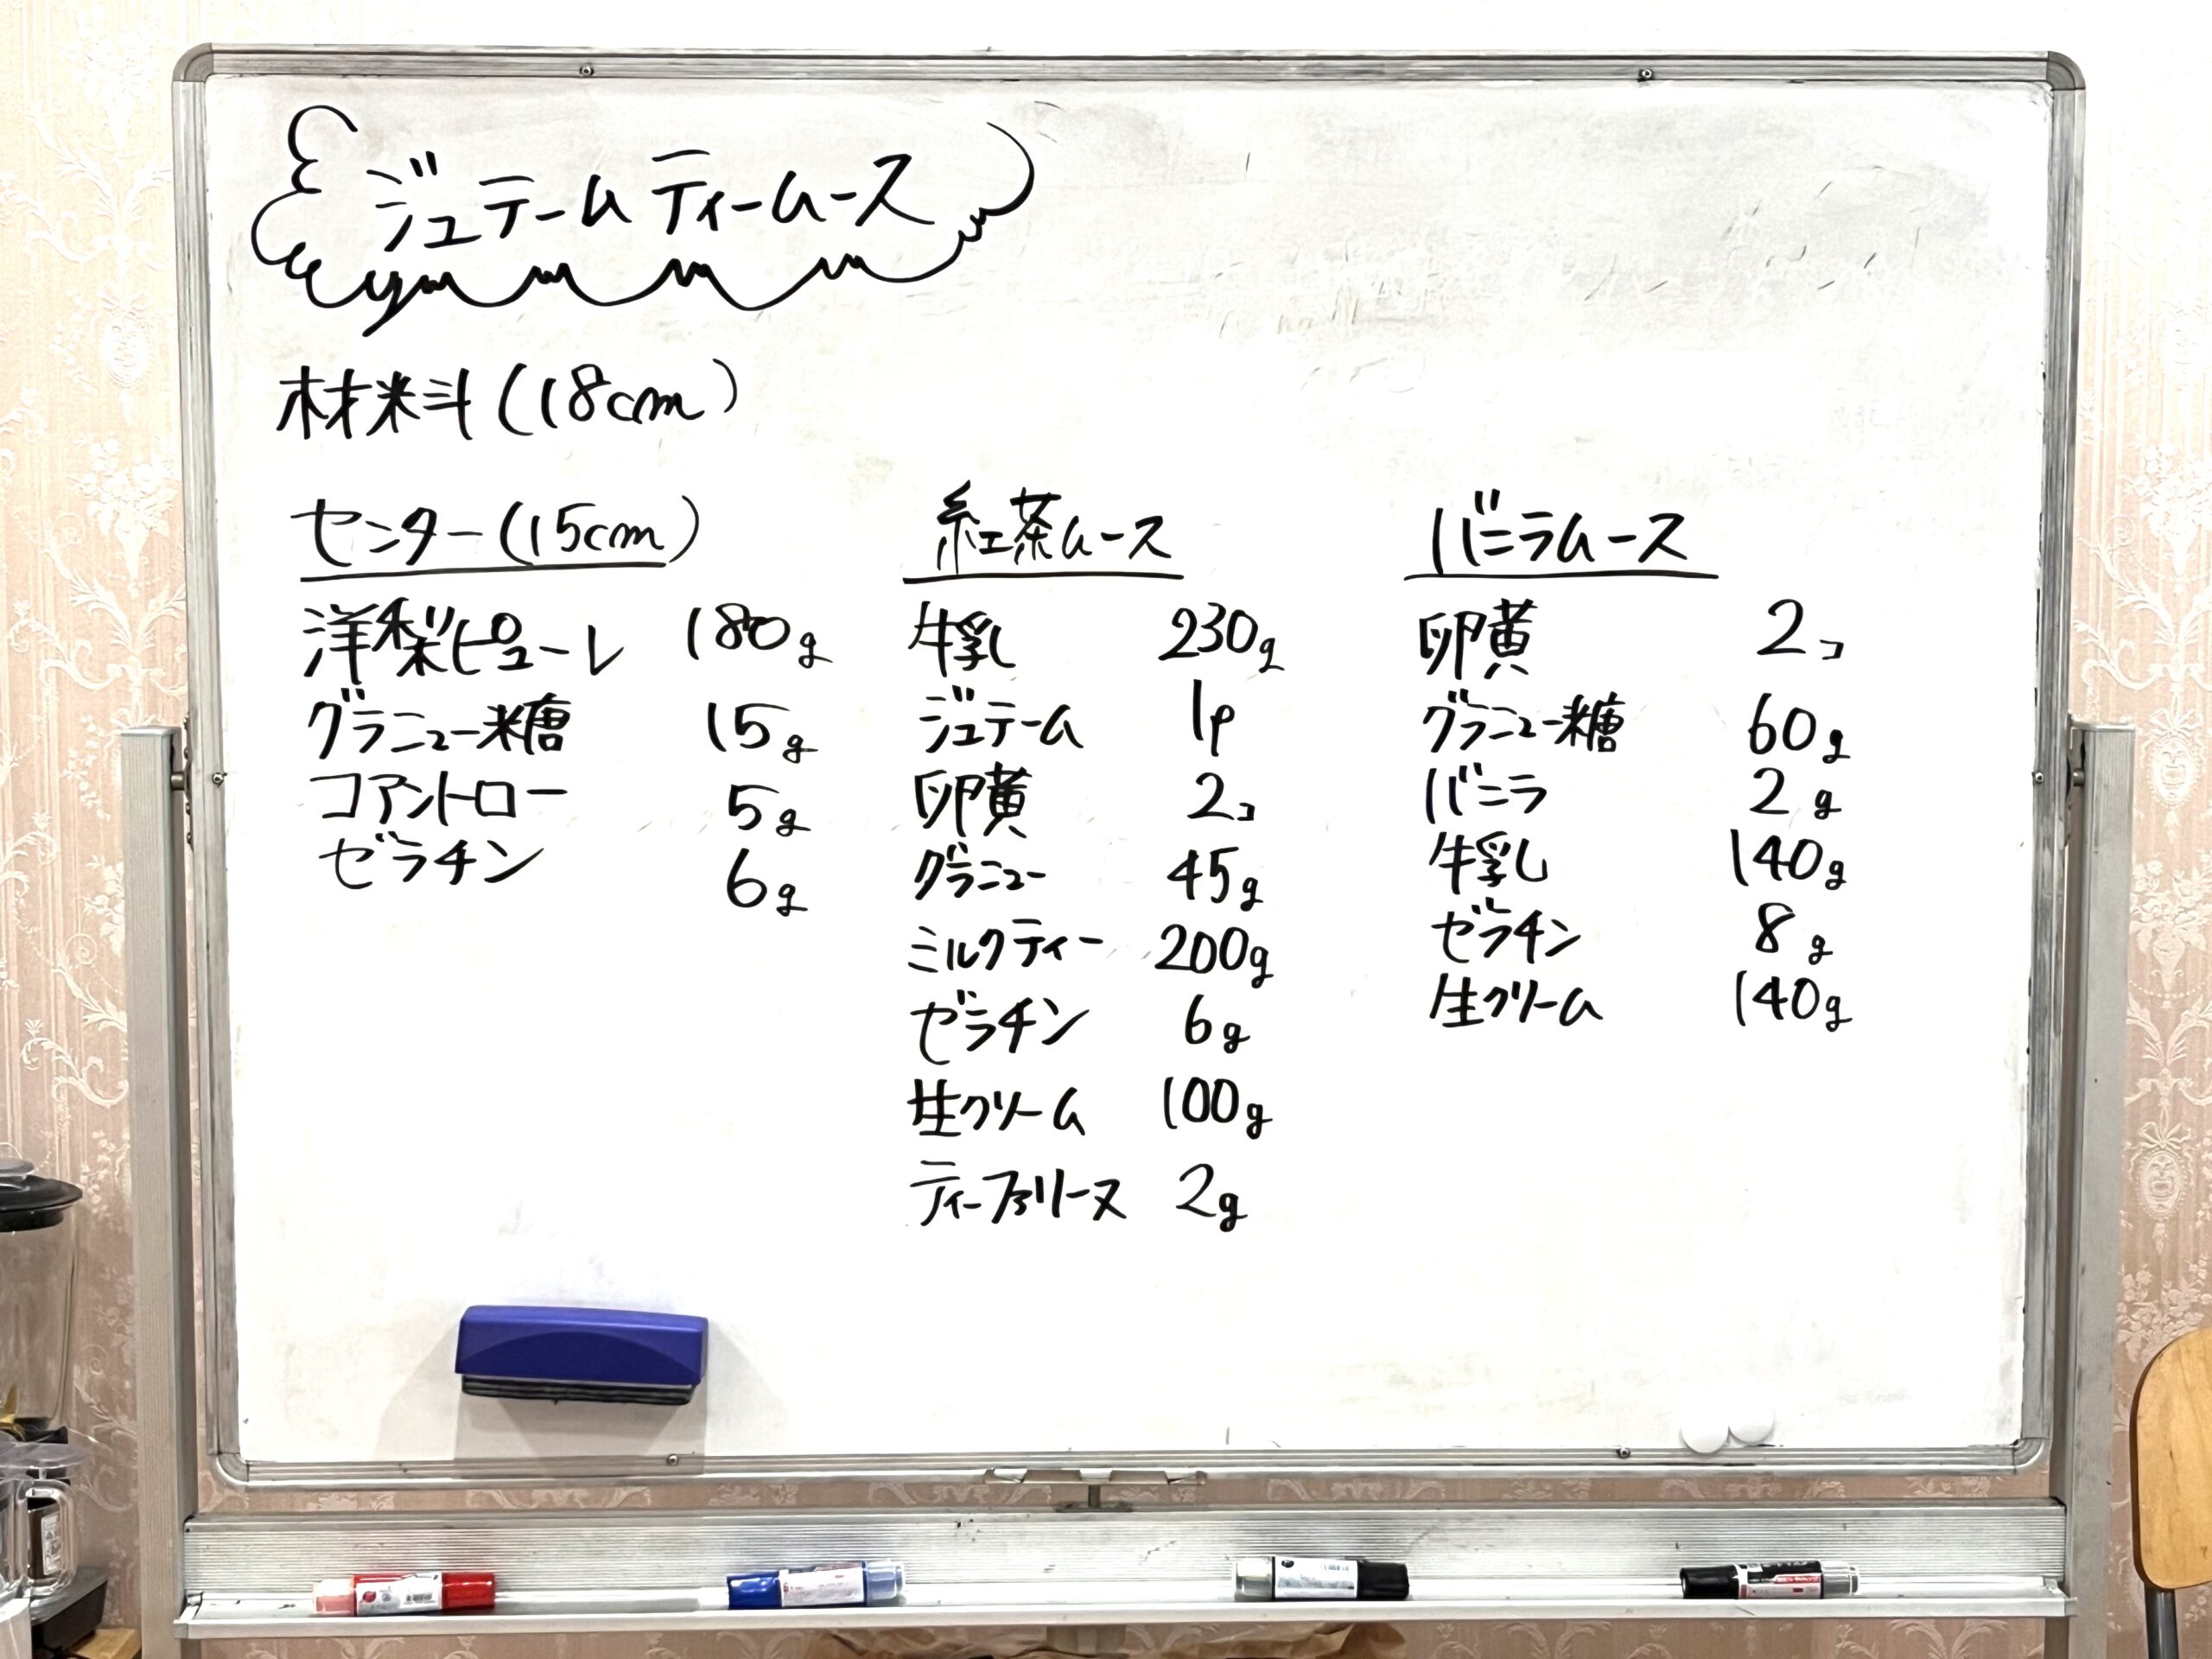 ジュテームティームース
材料(18cm)
センター(15cm)
洋梨ピューレ 180g
グラニュー糖 15g
コアントロー 5g
ゼラチン 6g
紅茶ムース
牛乳 230g
ジュテーム 1p
卵黄 2コ
グラニュー 45g
ミルクティー 200g
ゼラチン 6g
生クリーム 100g
ティーファリーヌ 2g
バニラムース
卵黄 2コ
グラニュー糖 60g
バニラ 2g
牛乳 140g
ゼラチン 8g
生クリーム 140g